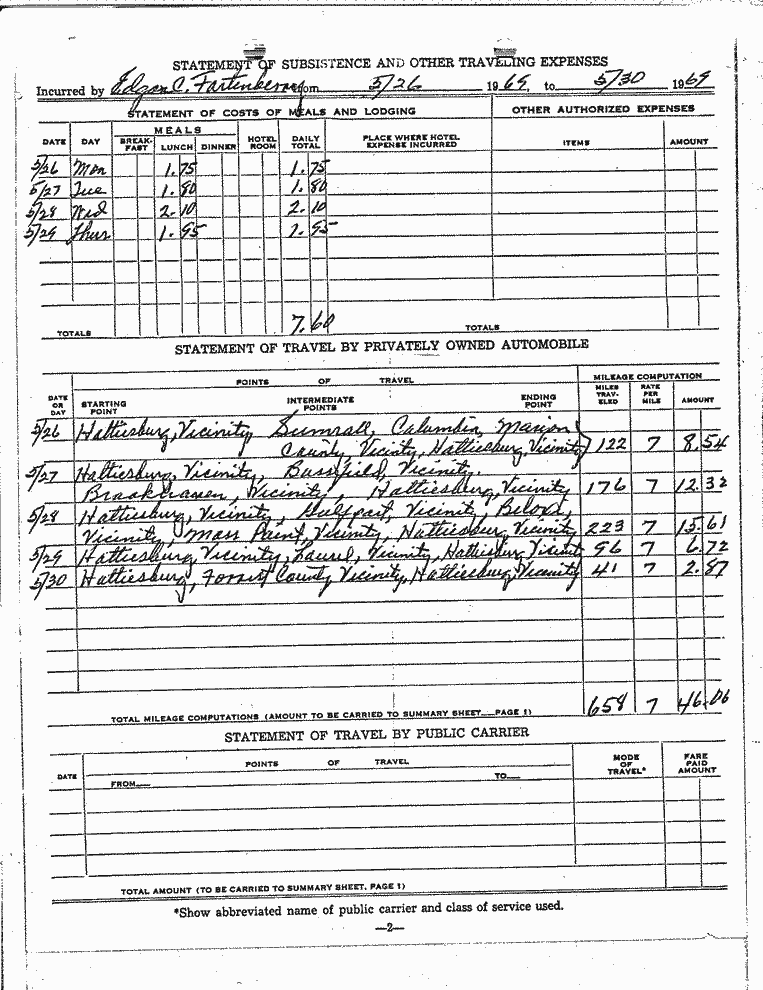 STATEMENT OF SUBSISTENCE AND OTHER TRAVELING EXPENSES
Incurred by Edgar C. from 5/26 1969, to 5/30 1969
STATEMENT OF COSTS OF MEALS AND LODGING OTHER AUTHORIZED EXPENSES
DATE DAY MEALS BREAK-FAST LUNCH DINNER HOTEL ROOM DAILY TOTAL PLACE WHERE HOTEL EXPENSE INCURRED ITEMS AMOUNT
5/26 Mon 1.75 1.75
5/27 Tue 1.80 1.80
5/28 Wed 2.10 2.10
5/29 Thur 1.95 1.95
7.60
TOTALS TOTALS
STATEMENT OF TRAVEL BY PRIVATELY OWNED AUTOMOBILE
POINTS OF TRAVEL MILEAGE COMPUTATION
DATE OR DAY STARTING POINT INTERMEDIATE POINTS ENDING POINT MILES TRAV-ELED RATE PER MILE AMOUNT
5/26 Hattiesburg, Vicinity Sumrall, Columbia, Marion
County, Vicinity, Hattiesburg, Vicinity 122 7 8.54
5/27 Hattiesburg, Vicinity, Bassfield, Vicinity,
Brookhaven, Vicinity, Hattiesburg, Vicinity 176 7 12.32
5/28 Hattiesburg, Vicinity, Gulfport, Vicinity, Biloxi,
Vicinity, Moss Point, Vicinity, Hattiesburg, Vicinity 223 7 15.61
5/29 Hattiesburg, Vicinity, Laurel, Vicinity, Hattiesburg, Vicinity 96 7 6.72
5/30 Hattiesburg, Forrest County Vicinity, Hattiesburg, Vicinity 41 7 2.87
TOTAL MILEAGE COMPUTATIONS (AMOUNT TO BE CARRIED TO SUMMARY SHEET PAGE 1) 658 7 46.06
STATEMENT OF TRAVEL BY PUBLIC CARRIER
DATE POINTS OF TRAVEL MODE OF TRAVEL* FARE PAID AMOUNT
FROM TO
TOTAL AMOUNT (TO BE CARRIED TO SUMMARY SHEET, PAGE 1)
*Show abbreviated name of public carrier and class of service used.
—2—